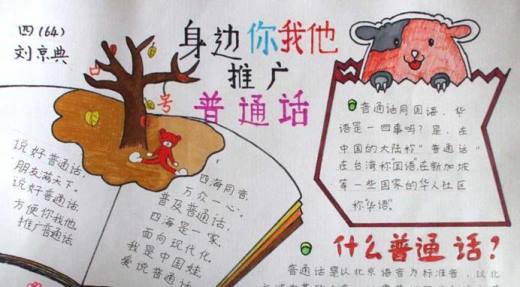 四(64)
刘京典
身边你我他
推广
普通话
口
号
说好普通话,
朋友满天下。
说好普通话,
方便你我他。
推广普通话
四海同音,
万众一心。
普及普通话,
四海是一家。
面向现代化,
我是中国娃,
爱说普通话
普通话同国语、华
语是一回事吗?是,在
中国的大陆称"普通话"
在台湾称"国语"在新加坡
等一些国家的华人社区
称"华语"。
什么普通话?
普通话是以北京语音为标准音,以北